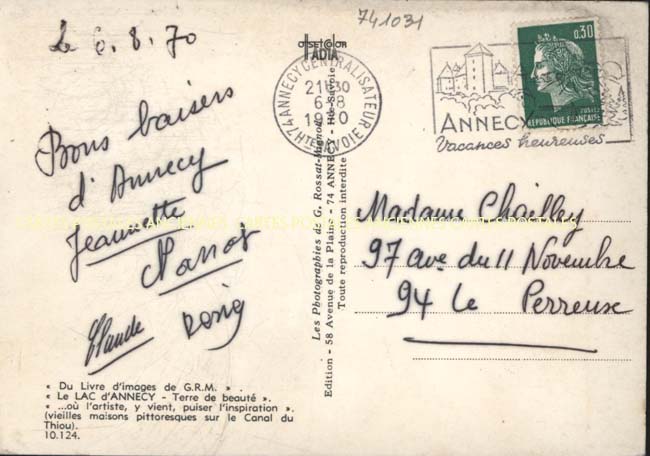 741031
Le 6.8.70
Bons baisers
d'Annecy
Jeannette
Claude
« Du Livre d'images de G.R.M. » .
« Le LAC d'ANNECY - Terre de beauté ».
« ...où l'artiste, y vient, puiser l'inspiration ».
(vieilles maisons pittoresques sur le Canal du
Thiou).
10.124.
OFFSETCOLOR
IADIA
Les Photographies de G. Rossat-Mignot
Edition - 58 Avenue de la Plaine - 74 ANNECY - Hte-Savoie
Toute reproduction interdite
74 ANNECY CENTRALISATEUR
21H30
6-8
19 0
HTE SAVOIE
ANNECY
Vacances heureuses
0,30
POSTES
REPUBLIQUE FRANÇAISE
Madame Chailley
97 ave du 11 Novembre
94 Le Perreux